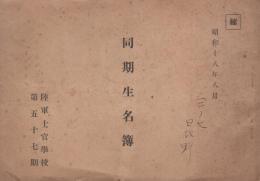 昭和十八年八月
同期生名簿
陸軍士官學校
第五十七期